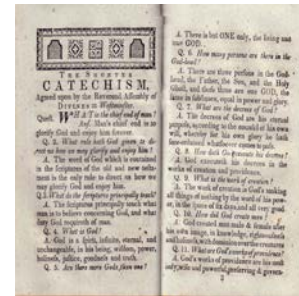 THE SHORTER
CATECHISM,
Agreed upon by the Reverend Assembly of
DIVINES at Westminster.
Quest. WHAT is the chief end of man?
Ans. Man's chief end is to
glorify God and enjoy him forever.
Q. 2. What rule hath God given to direct us how we may glorify and enjoy him?
A. The word of God which is contained
in the scriptures of the old and new testament is the only rule to direct us how we
may glorify God and enjoy him.
Q. 3. What do the scriptures principally teach?
A. The scriptures principally teach what
man is to believe concerning God, and what
duty God requireth of man.
Q. 4. What is God?
A. God is a spirit, infinite, eternal, and
unchangeable, in his being, wisdom, power,
holiness, justice, goodness and truth.
Q. 5. Are there more Gods than one?
A. There is but ONE only, the living and
true GOD.
Q. 6. How many persons are there in the
God-head?
A. There are three persons in the God-
head, the Father, the Son, and the Holy
Ghost, and these three are one GOD, the
same in substance, equal in power and glory.
Q. 7. What are the decrees of God?
A. The decrees of God are his eternal
purpose, according to the counsel of his own
will, whereby for his own glory he hath
fore-ordained whatsoever comes to pass.
Q. 8. How doth God execute his decrees?
A. God executeth his decrees in the
works of creation and providence.
Q. 9. What is the work of creation?
A. The work of creation is God's making
all things of nothing by the word of his power, in the space of six days, and all very good.
Q. 10. How did God create man?
A. God created man male & female after
his own image, in knowledge, righteousness
and holiness, with dominion over the creatures
Q. 11. What are God's works of providence?
A. God's works of providence are his most
holy, wise and powerful, preserving & govern-